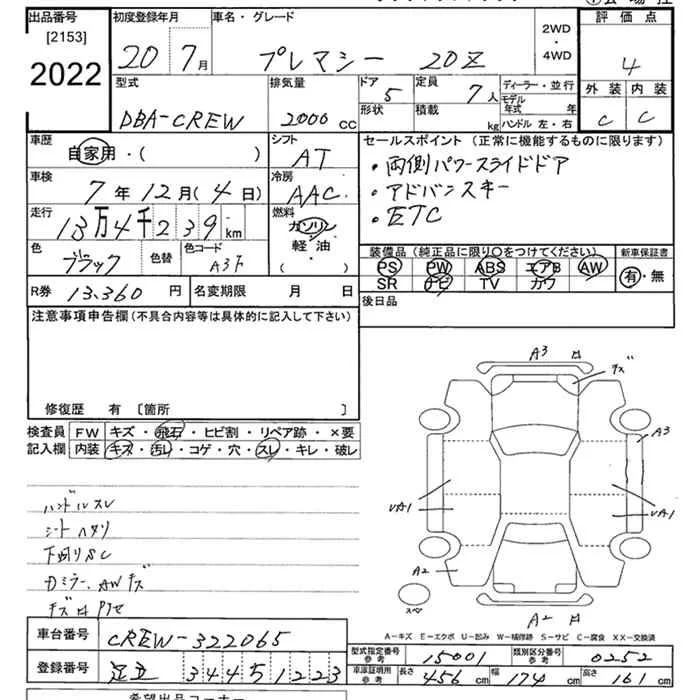 出品番号 初度登録年月 車名・グレード 2WD ・ 4WD 評価点
[2153]
2022 20 7月 プレマシー 20Z 4
型式 排気量 ドア 定員 ディーラー・並行 外装 内装
DBA-CREW 2000 cc 5 7人 モデル年式 年 C C
形状 積載 kg ハンドル 左・右
車歴 自家用・( ) シフト AT セールスポイント (正常に機能するものに限ります)
・両側パワースライドドア
車検 7年12月(4日) 冷房 AAC ・アドバンスキー
走行 13万4千239km 燃料 ガソリン 軽・油 ( ) ・ETC
色 ブラック 色替 色コード A3F
装備品 (純正品に限り○をつけてください) 新車保証書
PS PW ABS エアB AW 有・無
SR ナビ TV カワ
R券 13,360円 名変期限 月 日 後日品
注意事項申告欄 (不具合内容等は具体的に記入して下さい)
修復歴 有 〔箇所 〕
検査員 FW キズ・飛石・ヒビ割・リペア跡・×要
記入欄 内装 キズ・汚レ・コゲ・穴・スレ・キレ・破レ
ハンドルスレ
シートヘタリ
下回りSC
Dミラー、AWキズ
A3
A3
UA1
UA1
A2
A2
A-キズ E-エクボ U-凹み W-補修跡 S-サビ C-腐食 XX-交換済
車台番号 CREW-322065
型式指定番号 参考 15001 類別区分番号 参考 0252
登録番号 足立 344 5 1223
車庫証明用 参考 長さ 456cm 幅 174cm 高さ 161cm
希望出品コーナー